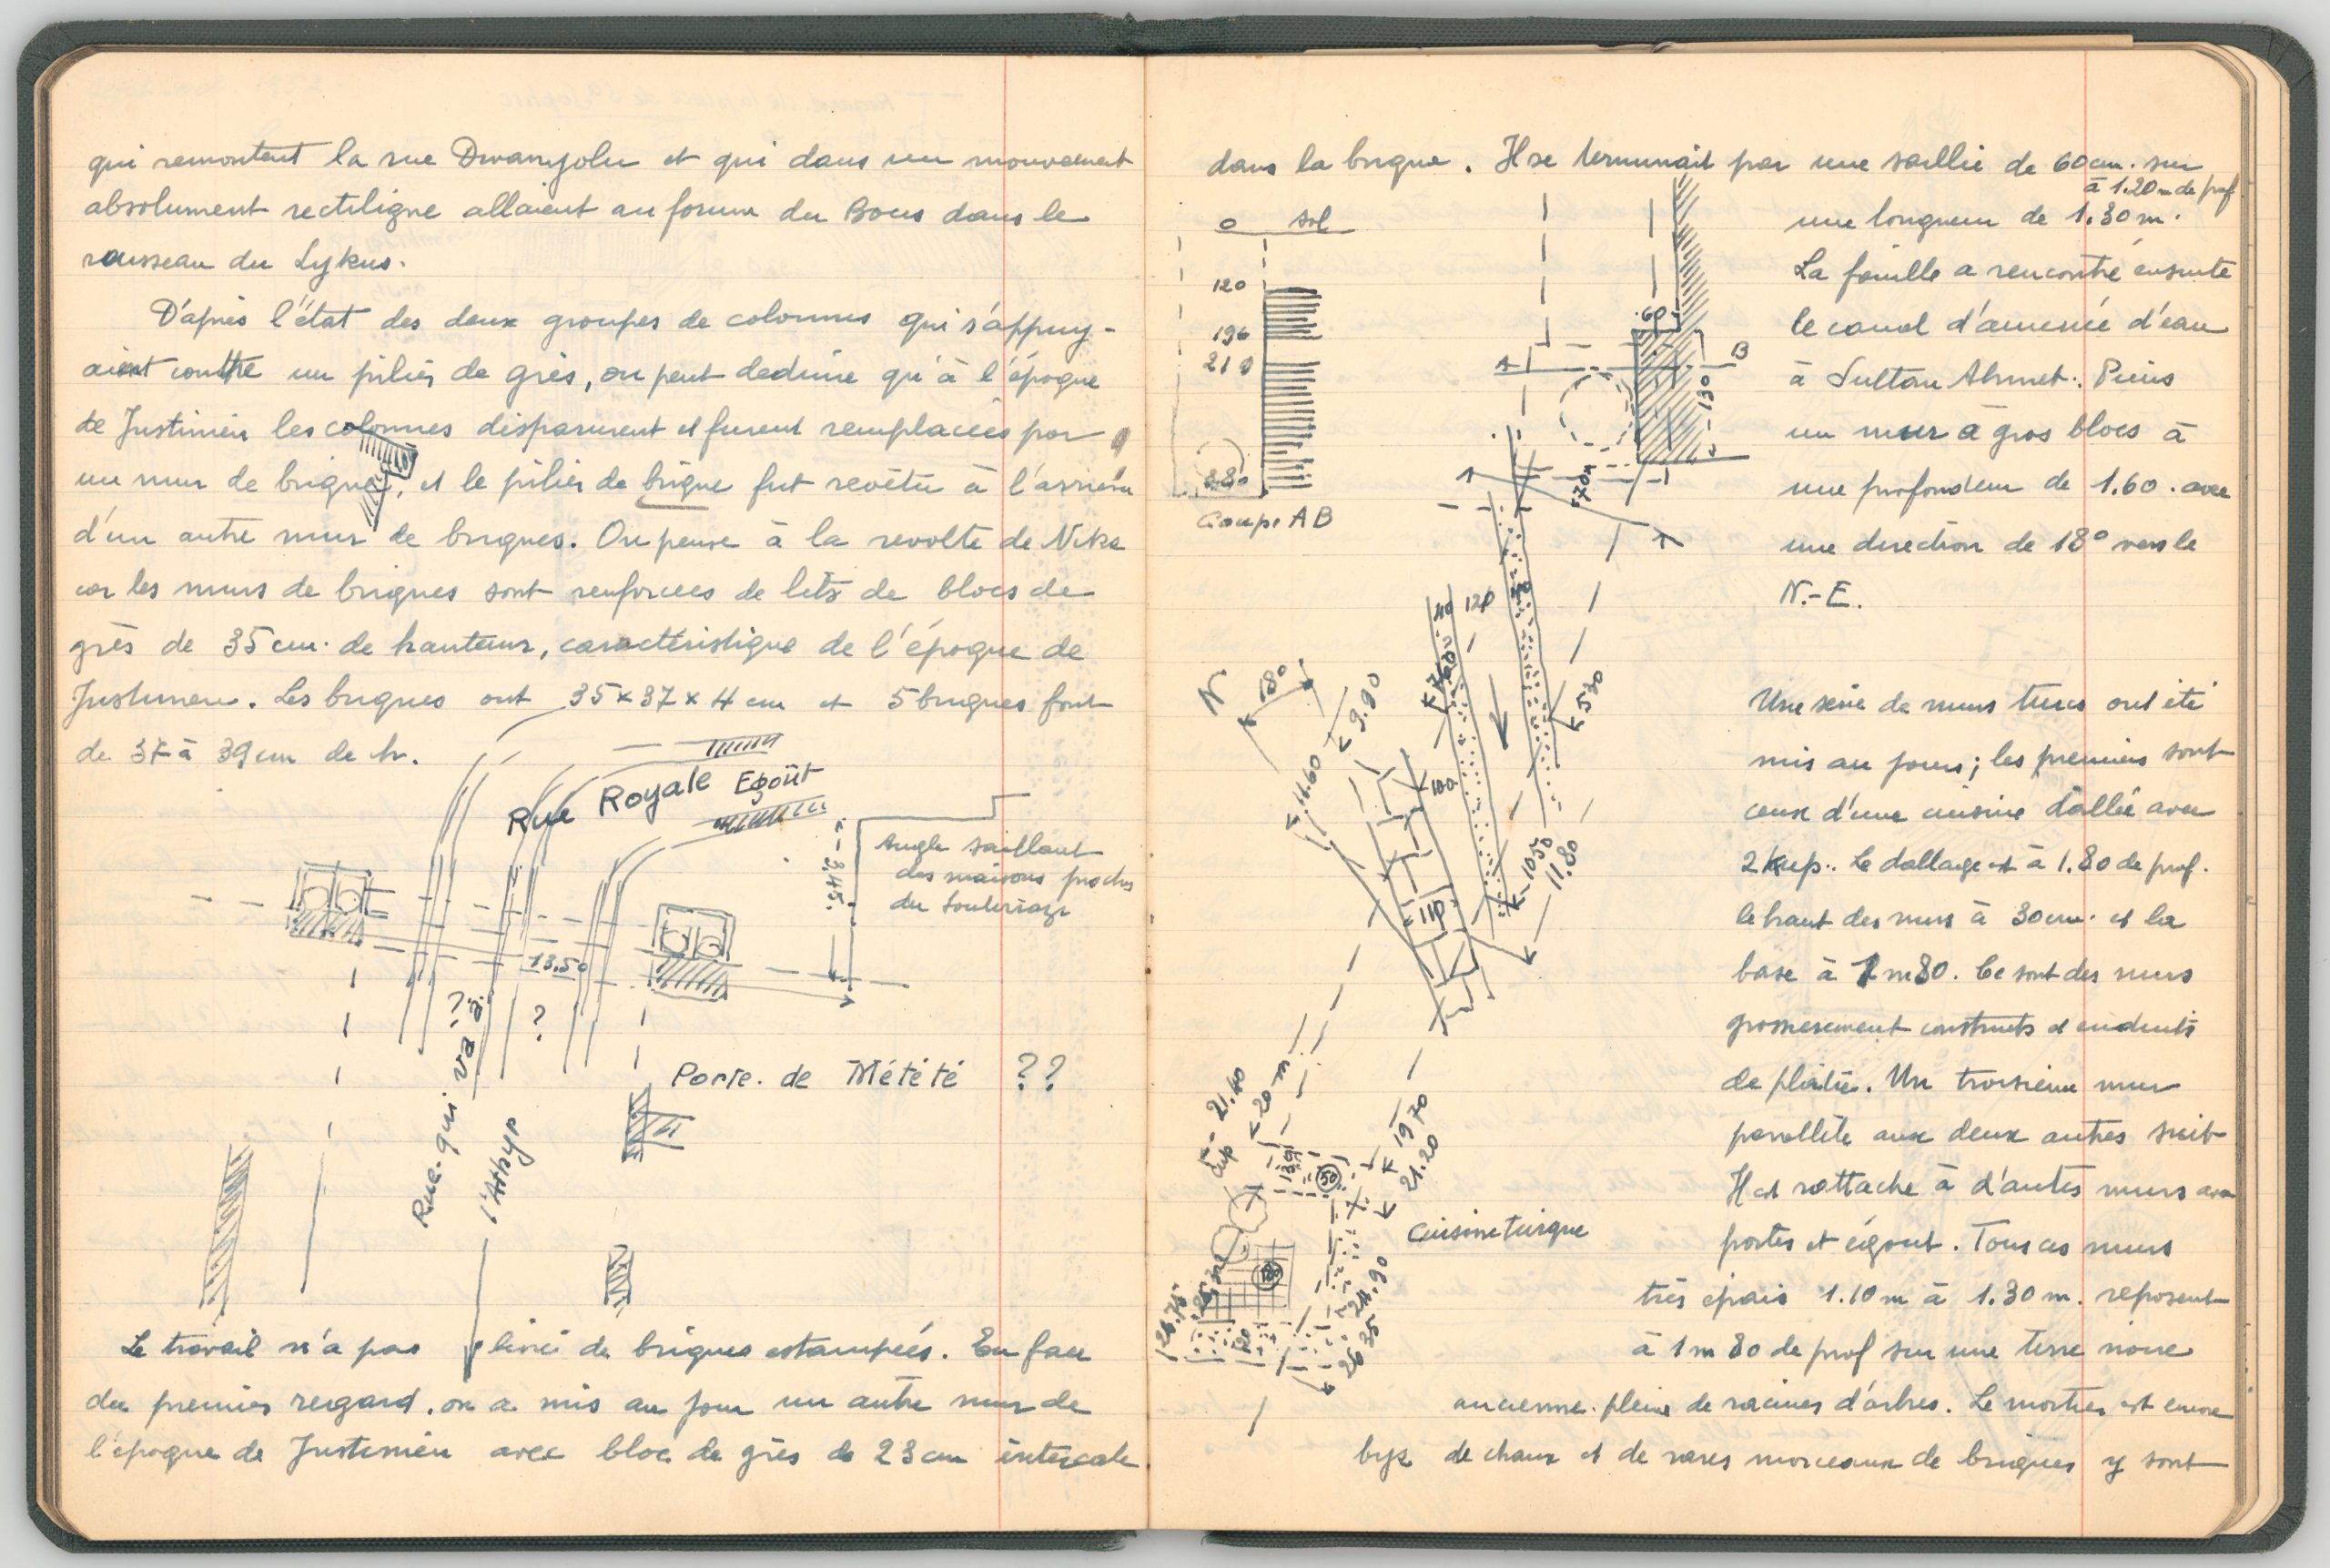 qui remontent la rue Divanyolu et qui dans un mouvement
absolument rectiligne allaient au forum du Bous dans le
rousseau du Lykus.
D'après l'état des deux groupes de colonnes qui s'appuy-
aient contre un pilier de grès, on peut deduire qu'à l'époque
de Justinien les colonnes disparurent et furent remplacées par
un mur de brique, et le pilier de brique fut revêtu à l'arrière
d'un autre mur de briques. On pense à la revolte de Nika
car les murs de briques sont renforcees de lits de blocs de
grès de 35 cm. de hauteur, caractéristique de l'époque de
Justinien. Les briques ont 35 x 37 x 4 cm et 5 briques font
de 37 à 39 cm de h.
Rue Royale Egoût
3,45
Angle saillant
des maisons proches
du
13.50
? ?
Rue qui va à
l'Athyr
Porte de Météte ??
Le travail n'a pas livré de briques estampées. En face
du premier regard, on a mis au jour un autre mur de
l'époque de Justinien avec bloc de grès de 23 cm intercale
dans la brique. Il se terminait par une saillie de 60 cm. sur
à 1.20 m de prof
une longueur de 1.30 m.
La fouille a rencontré ensuite
le canal d'amenée d'eau
à Sultan Ahmet. Puis
un mur à gros blocs à
une profondeur de 1.60. avec
une direction de 18° vers le
N.-E.
0 sol
120
196
210
380
Coupe AB
60
A B
130
570
40 120 70
N
180
9.90
11.60
530
100
110
10.50
11.80
Une série de murs turcs ont été
mis au jour; les premiers sont
ceux d'une cuisine dallée avec
2 kup. Le dallage est à 1.80 de prof.
le haut des murs à 30 cm. et la
base à 1 m 80. Ce sont des murs
grossierement construits et enduits
de plâtre. Un troisième mur
parallèle aux deux autres suit
Il est rattache à d'autres murs avec
portes et égout. Tous ces murs
très épais 1.10 m à 1.30 m. reposent
à 1 m 80 de prof sur une terre noire
ancienne pleine de racines d'arbres. Le mortier est encore
byz de chaux et de rares morceaux de briques y sont
21.40
20 m
Cup
130
50
19.70
21.20
Cuisine turque
24.90
26.35
26.75
120